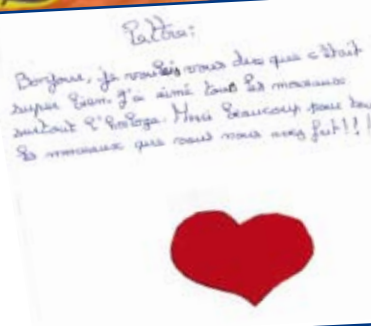 Lettre:
Bonjour, je voulais vous dire que c'était
super bien. J'ai aimé tous les morceaux
surtout l'horloge. Merci beaucoup pour tou
les morceaux que vous nous avez fait!!!